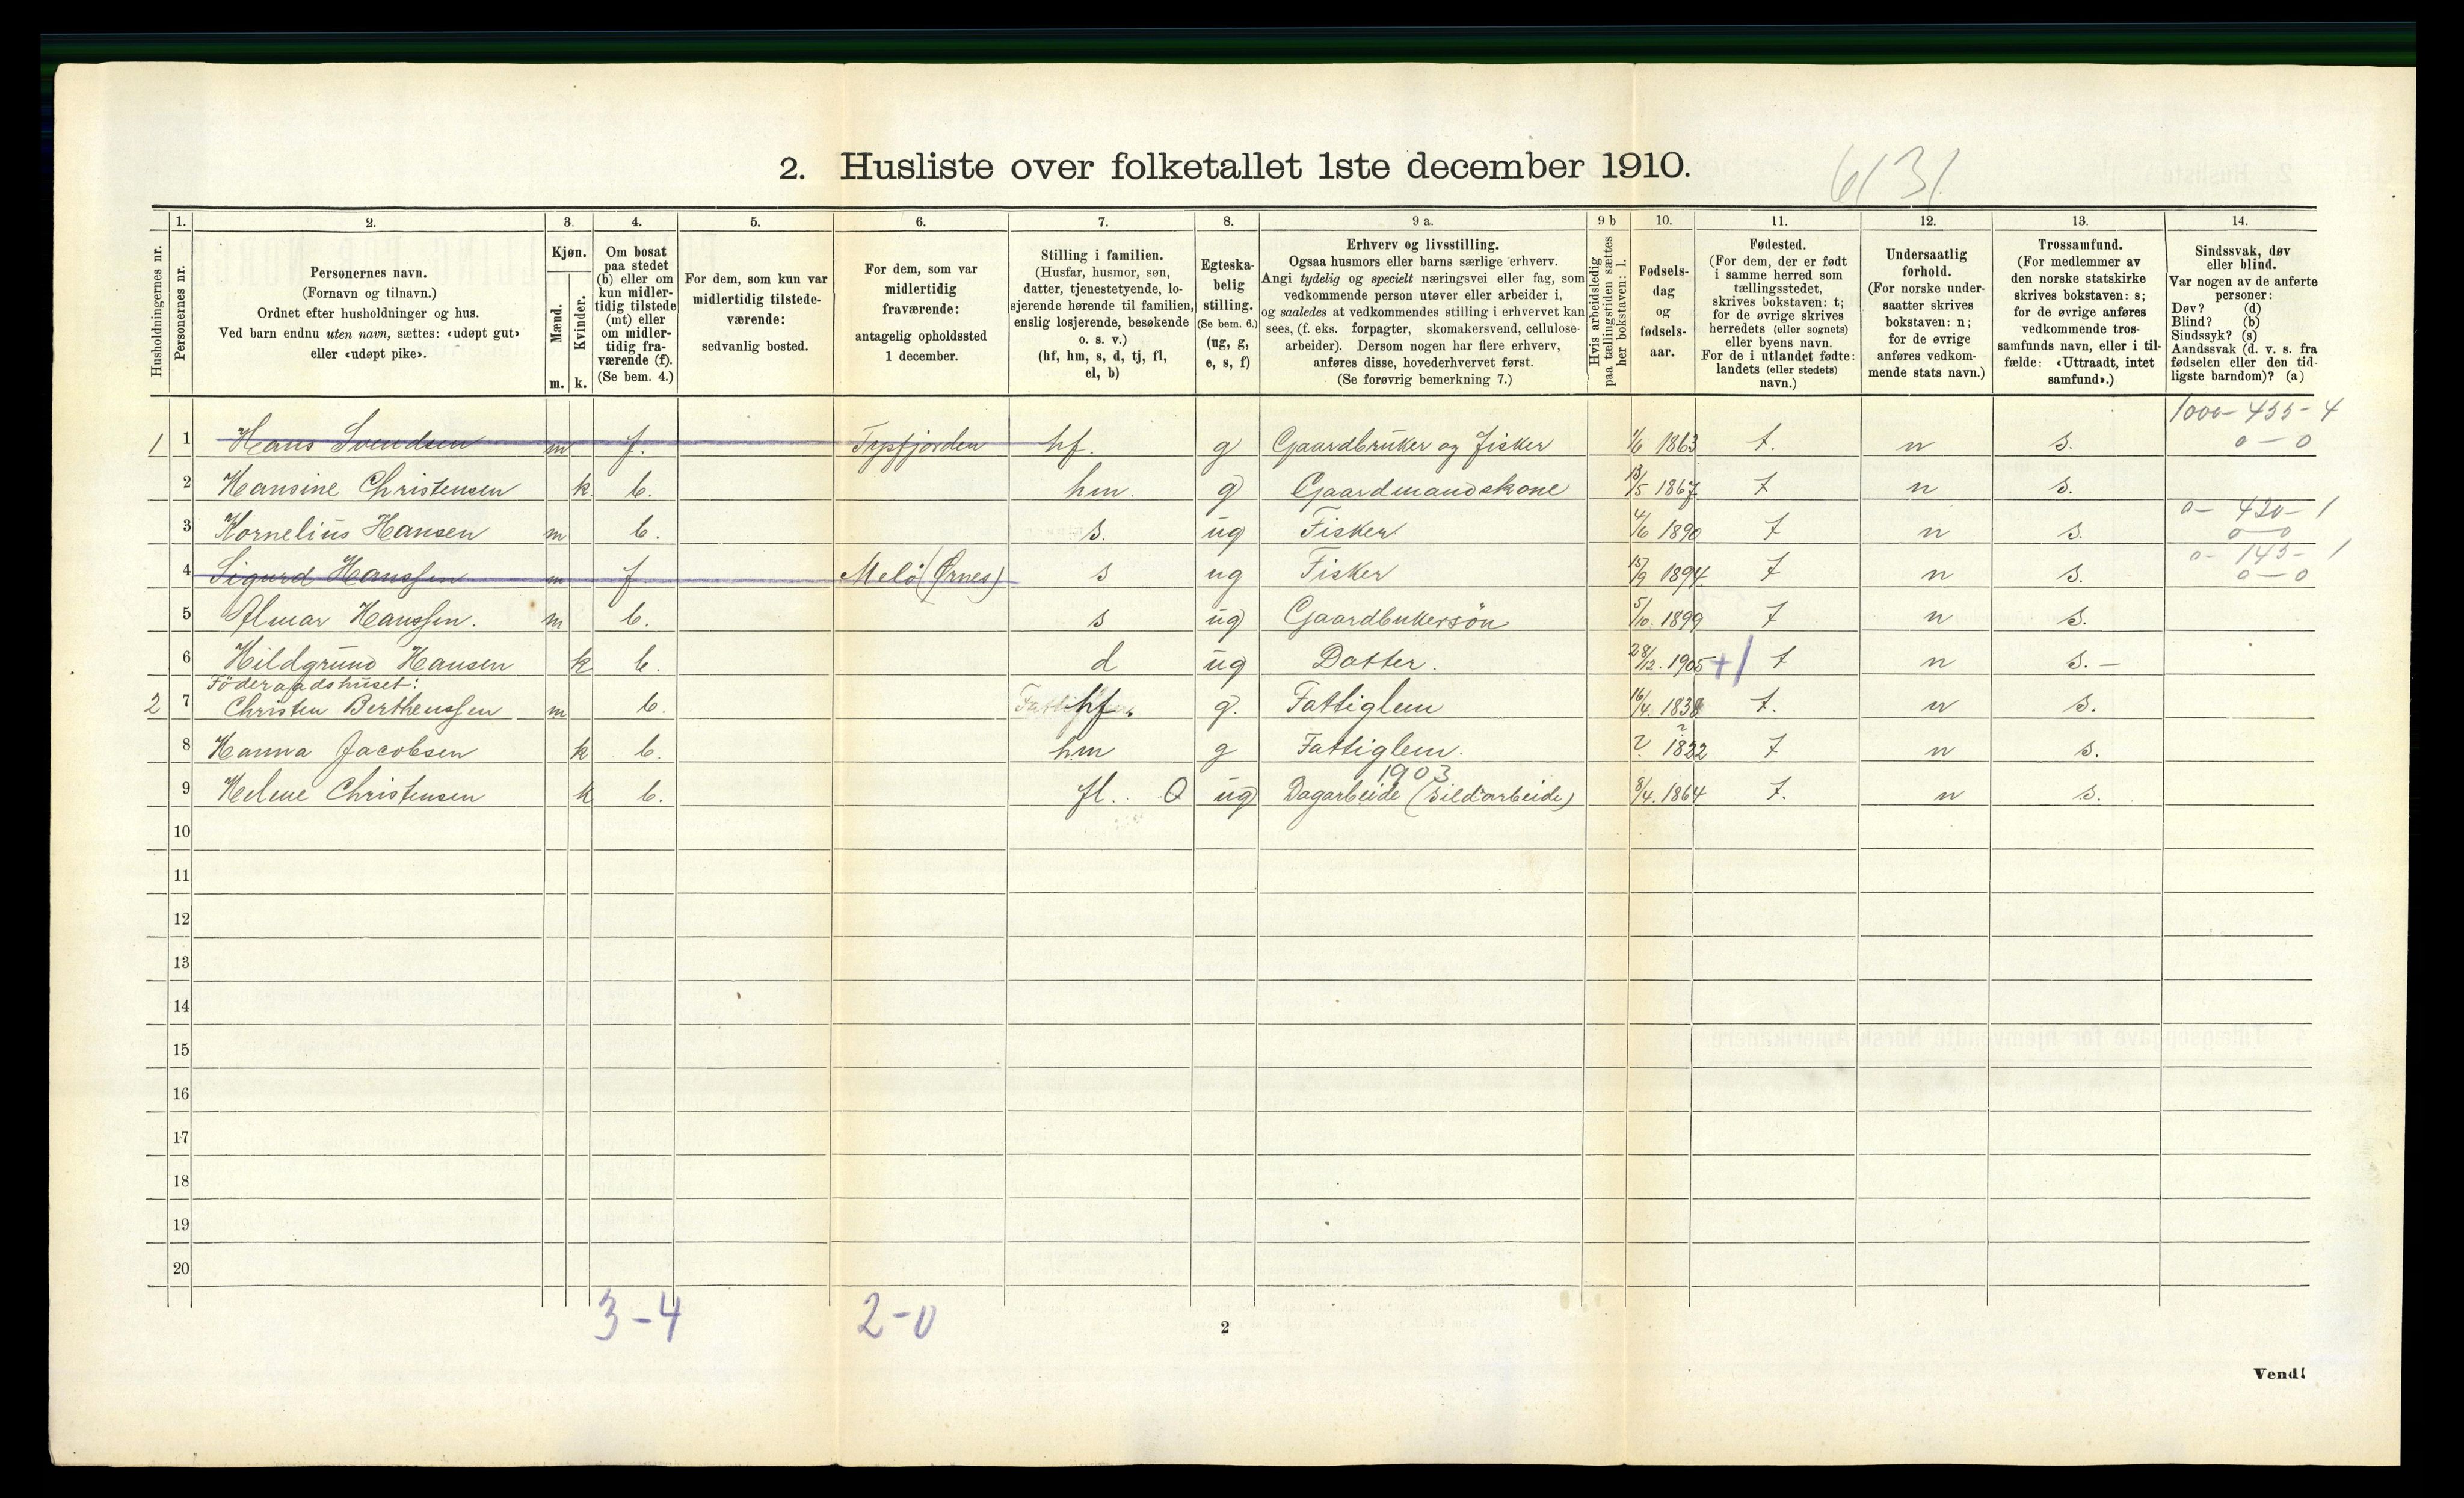 2. Husliste over folketallet 1ste december 1910.
6131
Husholdningernes nr.
1. Personernes nr.
2. Personernes navn. (Fornavn og tilnavn.) Ordnet efter husholdninger og hus. Ved barn endnu uten navn, sættes: «udøpt gut» eller «udøpt pike».
3. Kjøn. Mænd. m. Kvinder. k.
4. Om bosat paa stedet (b) eller om kun midlertidig tilstede (mt) eller om midlertidig fraværende (f). (Se bem. 4.)
5. For dem, som kun var midlertidig tilstedeværende: sedvanlig bosted.
6. For dem, som var midlertidig fraværende: antagelig opholdssted 1 december.
7. Stilling i familien. (Husfar, husmor, søn, datter, tjenestetyende, losjerende hørende til familien, enslig losjerende, besøkende o. s. v.) (hf, hm, s, d, tj, fl, el, b)
8. Egteskabelig stilling. (Se bem. 6.) (ug, g, e, s, f)
9 a. Erhverv og livsstilling. Ogsaa husmors eller barns særlige erhverv. Angi tydelig og specielt næringsvei eller fag, som vedkommende person utøver eller arbeider i, og saaledes at vedkommendes stilling i erhvervet kan sees, (f. eks. forpagter, skomakersvend, cellulosearbeider). Dersom nogen har flere erhverv, anføres disse, hovederhvervet først. (Se forøvrig bemerkning 7.)
9 b Hvis arbeidsledig paa tællingstiden sættes her bokstaven: l.
10. Fødselsdag og fødselsaar.
11. Fødested. (For dem, der er født i samme herred som tællingsstedet, skrives bokstaven: t; for de øvrige skrives herredets (eller sognets) eller byens navn. For de i utlandet fødte: landets (eller stedets) navn.)
12. Undersaatlig forhold. (For norske undersaatter skrives bokstaven: n; for de øvrige anføres vedkommende stats navn.)
13. Trossamfund. (For medlemmer av den norske statskirke skrives bokstaven: s; for de øvrige anføres vedkommende trossamfunds navn, eller i tilfælde: «Uttraadt, intet samfund».)
14. Sindssvak, døv eller blind. Var nogen av de anførte personer: Døv? (d) Blind? (b) Sindssyk? (s) Aandssvak (d. v. s. fra fødselen eller den tidligste barndom)? (a)
1000- 455- 4
1 1 Hans Svendsen m f. Tysfjorden hf. g Gaardbruker og Fisker 1/6 1863 t. n s. 0-0
2 Hansine Christensen k. b. hm. g Gaardmandskone 13/5 1867 t n s.
0- 420- 1
3 Kornelius Hansen m b. s. ug Fisker 4/6 1890 t n s. 0-0
0- 145- 1
4 Sigurd Hanssen m f Melö (Ørnes) s ug Fisker 15/9 1894 t n s. 0-0
5 Almar Hanssen. m b. s ug Gaardbukersön 5/10. 1899 t n s.
6 Hildgrund Hansen k b. d ug Datter. 28/12. 1905 +1 t n s. -
Föderaadshuset:
2 7 Christen Berthenssen m b. hf. g. Fattiglem 16/4. 1838 t. n s.
8 Hanna Jacobsen k b. hm g Fattiglem. ? 1822 t n s.
1903
9 Helene Christensen k b. fl. 0 ug Dagarbeide (Sildarbeide) 8/4. 1864 t. n s.
10
11
12
13
14
15
16
17
18
19
20
3-4 2-0
2
Vend!